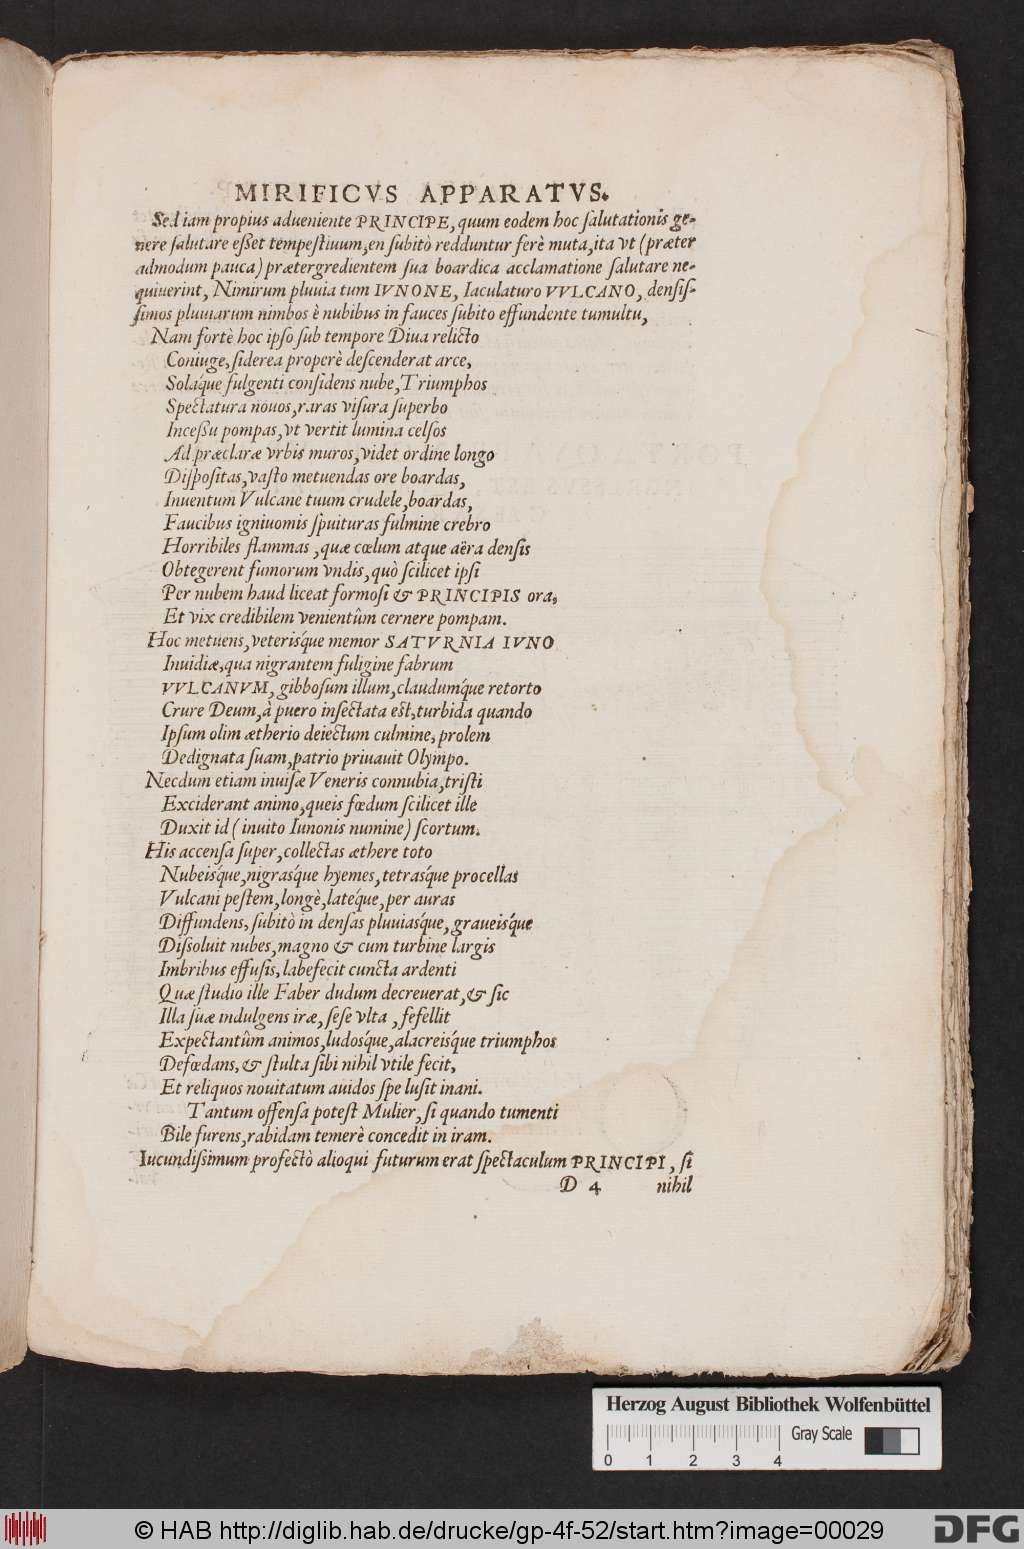 MIRIFICVS APPARATVS.
Sed iam propius adueniente PRINCIPE, quum eodem hoc ſalutationis ge-
nere ſalutare eſſet tempeſtiuum, en ſubitò redduntur ferè muta, ita vt (præter
admodum pauca) prætergredientem ſua boardica acclamatione ſalutare ne-
quiuerint, Nimirum pluuia tum IVNONE, Iaculaturo VVLCANO, denſiſ-
ſimos pluuiarum nimbos è nubibus in fauces ſubito effundente tumultu,
Nam fortè hoc ipſo ſub tempore Diua relicto
Coniuge, ſiderea properè deſcenderat arce,
Solaq́ue fulgenti conſidens nube, Triumphos
Spectatura nouos, raras viſura ſuperbo
Inceſſu pompas, vt vertit lumina celſos
Ad præclaræ vrbis muros, videt ordine longo
Diſpoſitas, vaſto metuendas ore boardas,
Inuentum Vulcane tuum crudele, boardas,
Faucibus igniuomis ſpuituras fulmine crebro
Horribiles flammas, quæ cœlum atque aëra denſis
Obtegerent fumorum vndis, quò ſcilicet ipſi
Per nubem haud liceat formoſi & PRINCIPIS ora,
Et vix credibilem venientûm cernere pompam.
Hoc metuens, veterisq́ue memor SATVRNIA IVNO
Inuidiæ, qua nigrantem fuligine fabrum
VVLCANVM, gibboſum illum, claudumq́ue retorto
Crure Deum, à puero inſectata eſt, turbida quando
Ipſum olim ætherio deiectum culmine, prolem
Dedignata ſuam, patrio priuauit Olympo.
Necdum etiam inuiſæ Veneris connubia, triſti
Exciderant animo, queis fœdum ſcilicet ille
Duxit id (inuito Iunonis numine) ſcortum.
His accenſa ſuper, collectas æthere toto
Nubeisq́ue, nigrasq́ue hyemes, tetrasq́ue procellas
Vulcani peſtem, longè, lateq́ue, per auras
Diffundens, ſubitò in denſas pluuiasq́ue, graueisq́ue
Diſſoluit nubes, magno & cum turbine largis
Imbribus effuſis, labefecit cuncta ardenti
Quæ ſtudio ille Faber dudum decreuerat, & ſic
Illa ſuæ indulgens iræ, ſeſe vlta, fefellit
Expectantûm animos, ludosq́ue, alacreisq́ue triumphos
Defœdans, & ſtulta ſibi nihil vtile fecit,
Et reliquos nouitatum auidos ſpe luſit inani.
Tantum offenſa poteſt Mulier, ſi quando tumenti
Bile furens, rabidam temerè concedit in iram.
Iucundiſſimum profectò alioqui futurum erat ſpectaculum PRINCIPI, ſi
D 4 nihil
Herzog August Bibliothek Wolfenbüttel
Gray Scale
0 1 2 3 4
© HAB http://diglib.hab.de/drucke/gp-4f-52/start.htm?image=00029
DFG